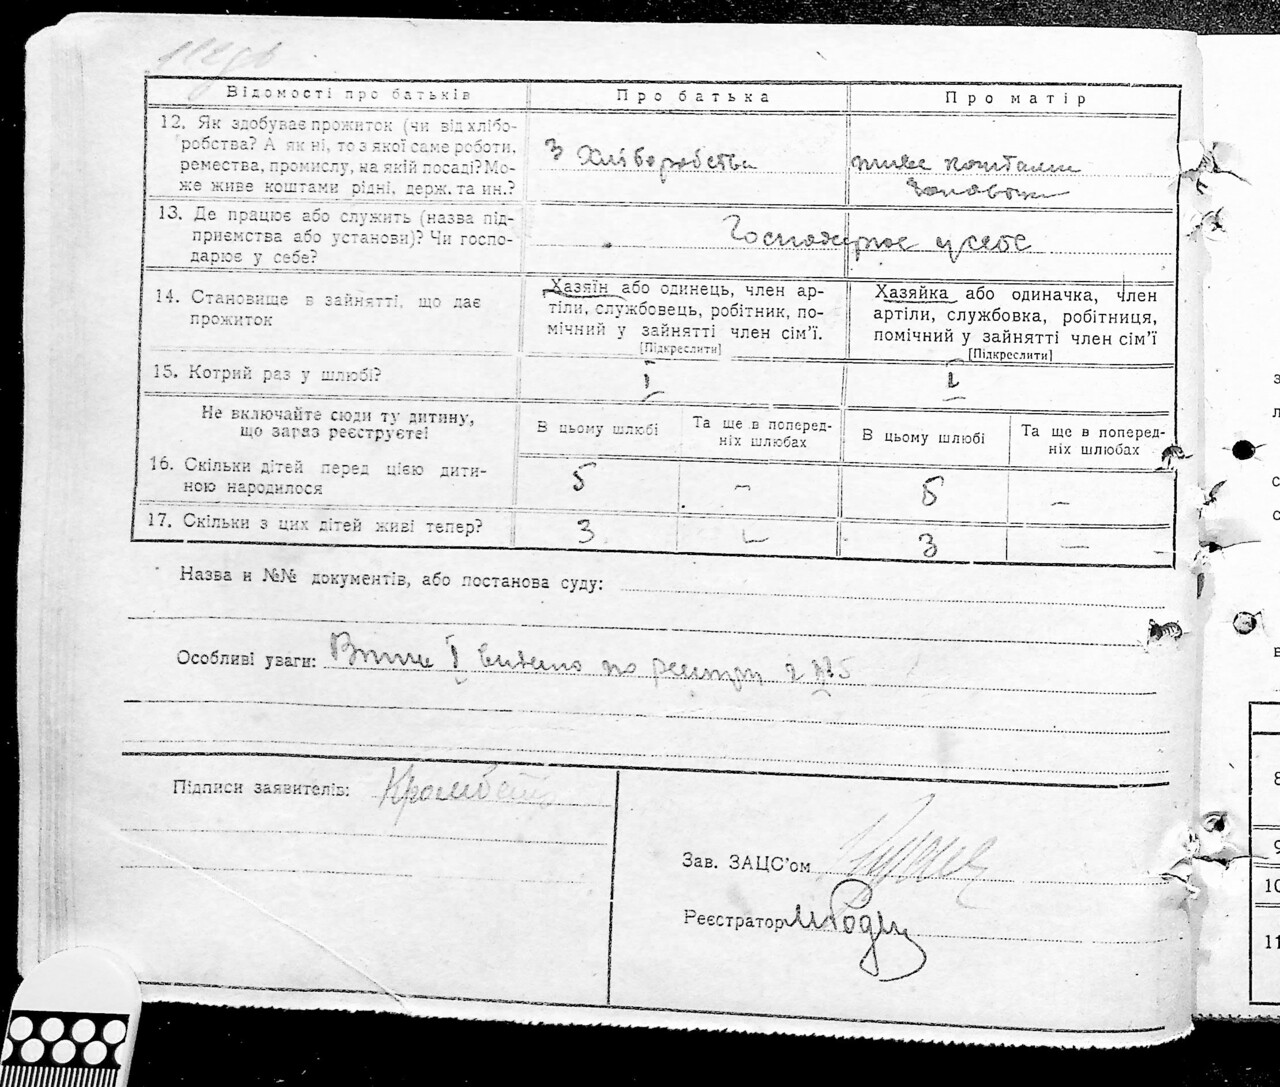 Відомості про батьків
Про батька
Про матір
12. Як здобуває прожиток (чи від хлібо-
робства? А як ні, то з якої саме роботи,
ремества, промислу, на якій посаді? Мо-
же живе коштами рідні, держ. та ин.?
З хліборобства
живе коштами
чоловіка
13. Де працює або служить (назва під-
приємства або установи)? Чи госпо-
дарює у себе?
Господарює у себе
14. Становище в зайнятті, що дає
прожиток
Хазяїн або одинець, член ар-
тіли, службовець, робітник, по-
мічний у зайнятті член сім’ї.
[Підкреслити]
Хазяйка або одиначка, член
артіли, службовка, робітниця,
помічний у зайнятті член сім’ї
[Підкреслити]
15. Котрий раз у шлюбі?
I
I
Не включайте сюди ту дитину,
що зараз реєструєте!
В цьому шлюбі
Та ще в поперед-
ніх шлюбах
В цьому шлюбі
Та ще в поперед-
ніх шлюбах
16. Скільки дітей перед цією дити-
ною народилося
5
–
5
–
17. Скільки з цих дітей живі тепер?
3
–
3
–
Назва й №№ документів, або постанова суду:
Особливі уваги: Витяг видано по реєстру №5
Підписи заявителів:
Зав. ЗАЦС’ом
Реєстратор
8
9
10
11